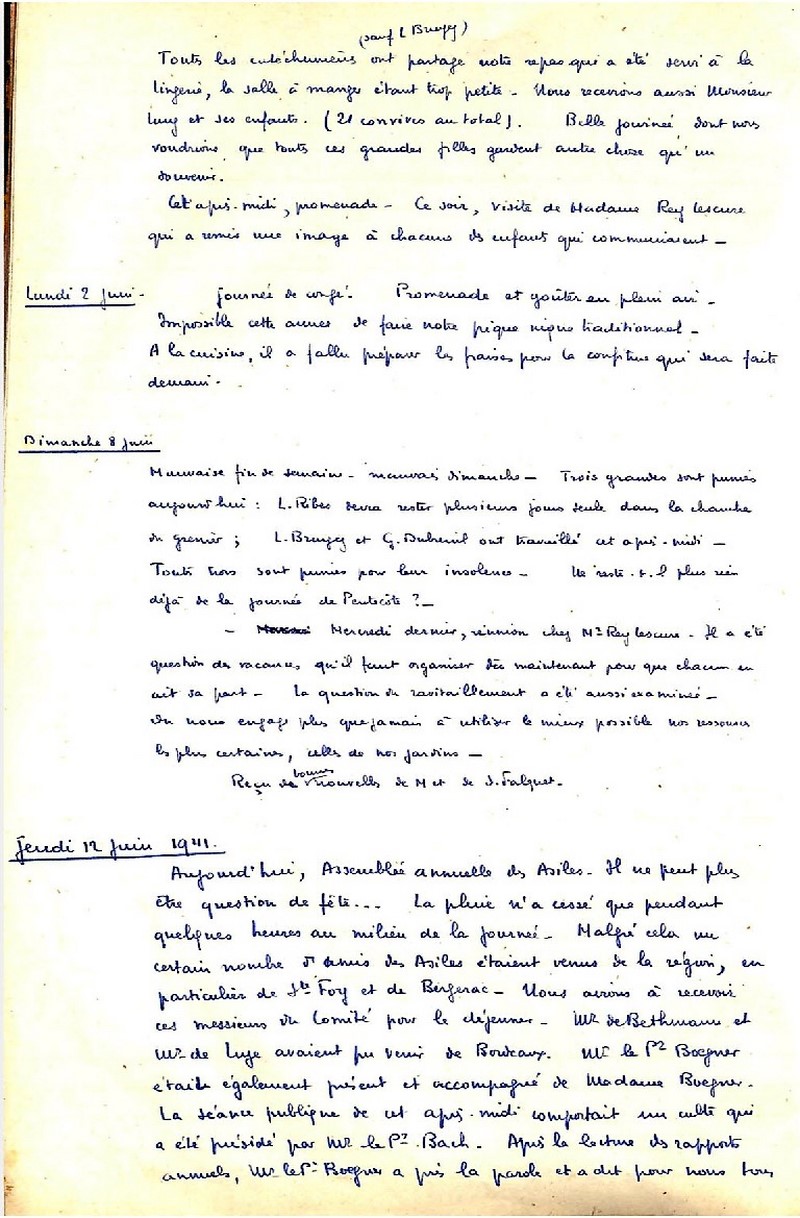 (sauf L Brugey)
Toutes les catéchumènes ont partagé notre repas qui a été servi à la
lingerie, la salle à manger étant trop petite - Nous recevions aussi Monsieur
Luuy et ses enfants. (21 convives au total). Belle journée dont nous
voudrions que toutes ces grandes filles gardent autre chose qu'un
souvenir.
Cet après-midi, promenade - Ce soir, visite de Madame Rey Lescure
qui a remis une image à chacune des enfants qui communiaient -
Lundi 2 Juin - Journée de congé. Promenade et goûter en plein air -
Impossible cette année de faire notre pique nique traditionnel -
A la cuisine, il a fallu préparer les fraises pour la confiture qui sera faite
demain -
Dimanche 8 Juin
Mauvaise fin de semaine - mauvais dimanche - Trois grandes sont punies
aujourd'hui : L. Ribes devra rester plusieurs jours seule dans la chambre
du grenier ; L. Brugey et G. Dubreuil ont travaillé cet après-midi -
Toutes trois sont punies pour leur insolence - Ne reste-t-il plus rien
déjà de la journée de Pentecôte ? -
- Mercredi dernier, réunion chez Mr Rey Lescure - Il a été
question des vacances, qu'il faut organiser dès maintenant pour que chacun en
ait sa part - La question du ravitaillement a été aussi examinée -
On nous engage plus que jamais à utiliser le mieux possible nos ressources
les plus certaines, celles de nos jardins -
Reçu de bonnes nouvelles de M et de J. Falguet -
Jeudi 12 Juin 1941.
Aujourd'hui, Assemblée annuelle des Asiles - Il ne peut plus
être question de fête... La pluie n'a cessé que pendant
quelques heures au milieu de la journée - Malgré cela un
certain nombre d'amis des Asiles étaient venus de la région, en
particulier de Ste Foy et de Bergerac - Nous avions à recevoir
ces messieurs du Comité pour le déjeuner - Mr de Bethmann et
Mr de Luze avaient pu venir de Bordeaux. Mr le Pr Boegner
était également présent et accompagné de Madame Boegner.
La séance publique de cet après-midi comportait un culte qui
a été présidé par Mr le Pr Bach - Après la lecture des rapports
annuels, Mr le Pr Boegner a pris la parole et a dit pour nous tous